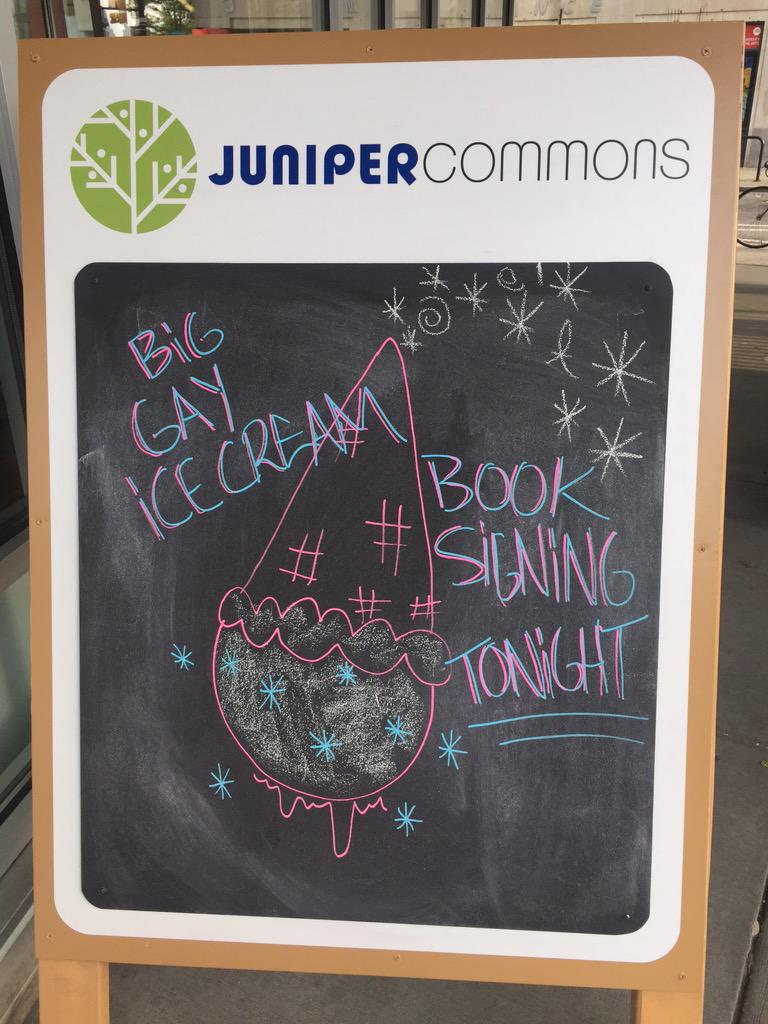 JUNIPERCOMMONS
BiG
GAY
iCE CREAM
BOOK
SiGNiNG
TONiGHT